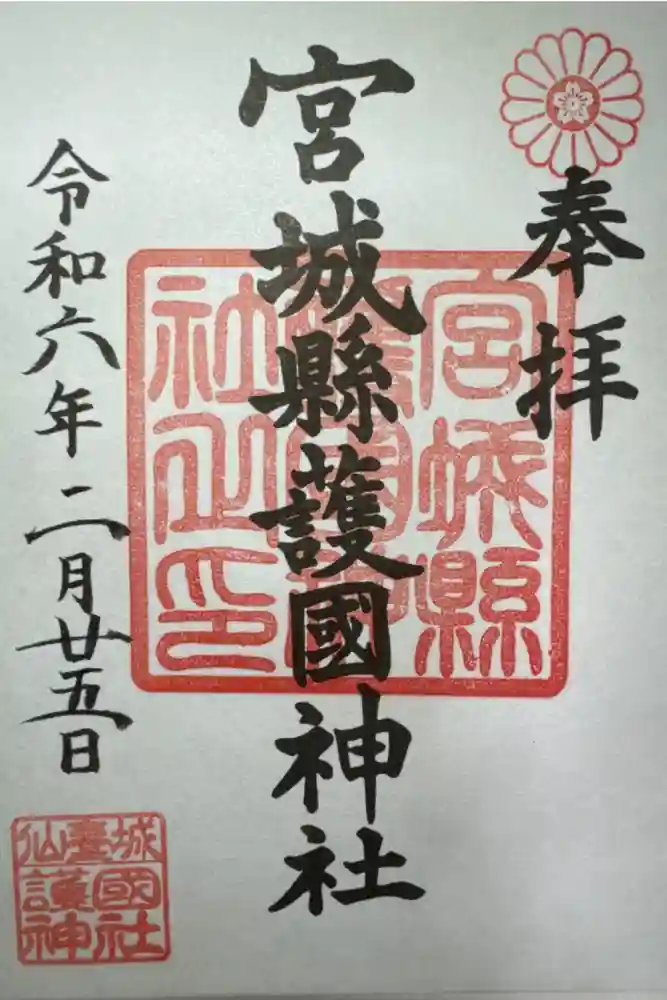 奉拝
宮城縣護國神社
令和六年二月廿五日
宮城縣
護國神
社之印
仙臺城
護國
神社